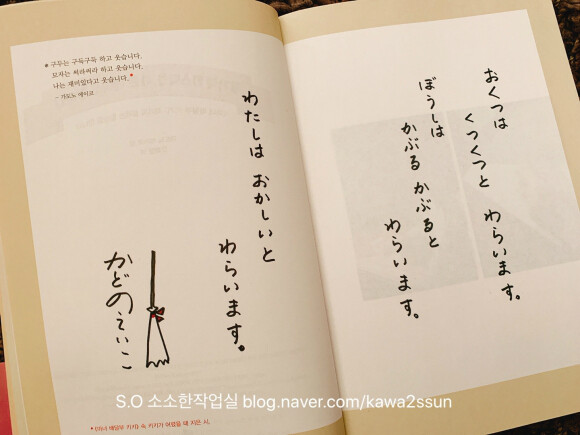 구두는 구득구득 하고 웃습니다.
모자는 써라써라 하고 웃습니다.
나는 재미있다고 웃습니다.
- 가도노 에이코
おくつは
くつくつと わらいます。
ぼうしは
かぶる かぶると
わらいます。
わたしは おかしいと
わらいます。
かどのえいこ
《마녀 배달부 키키》 속, 키키가 어렸을 때 지은 시.
S.O 소소한작업실 blog.naver.com/kawa2ssun